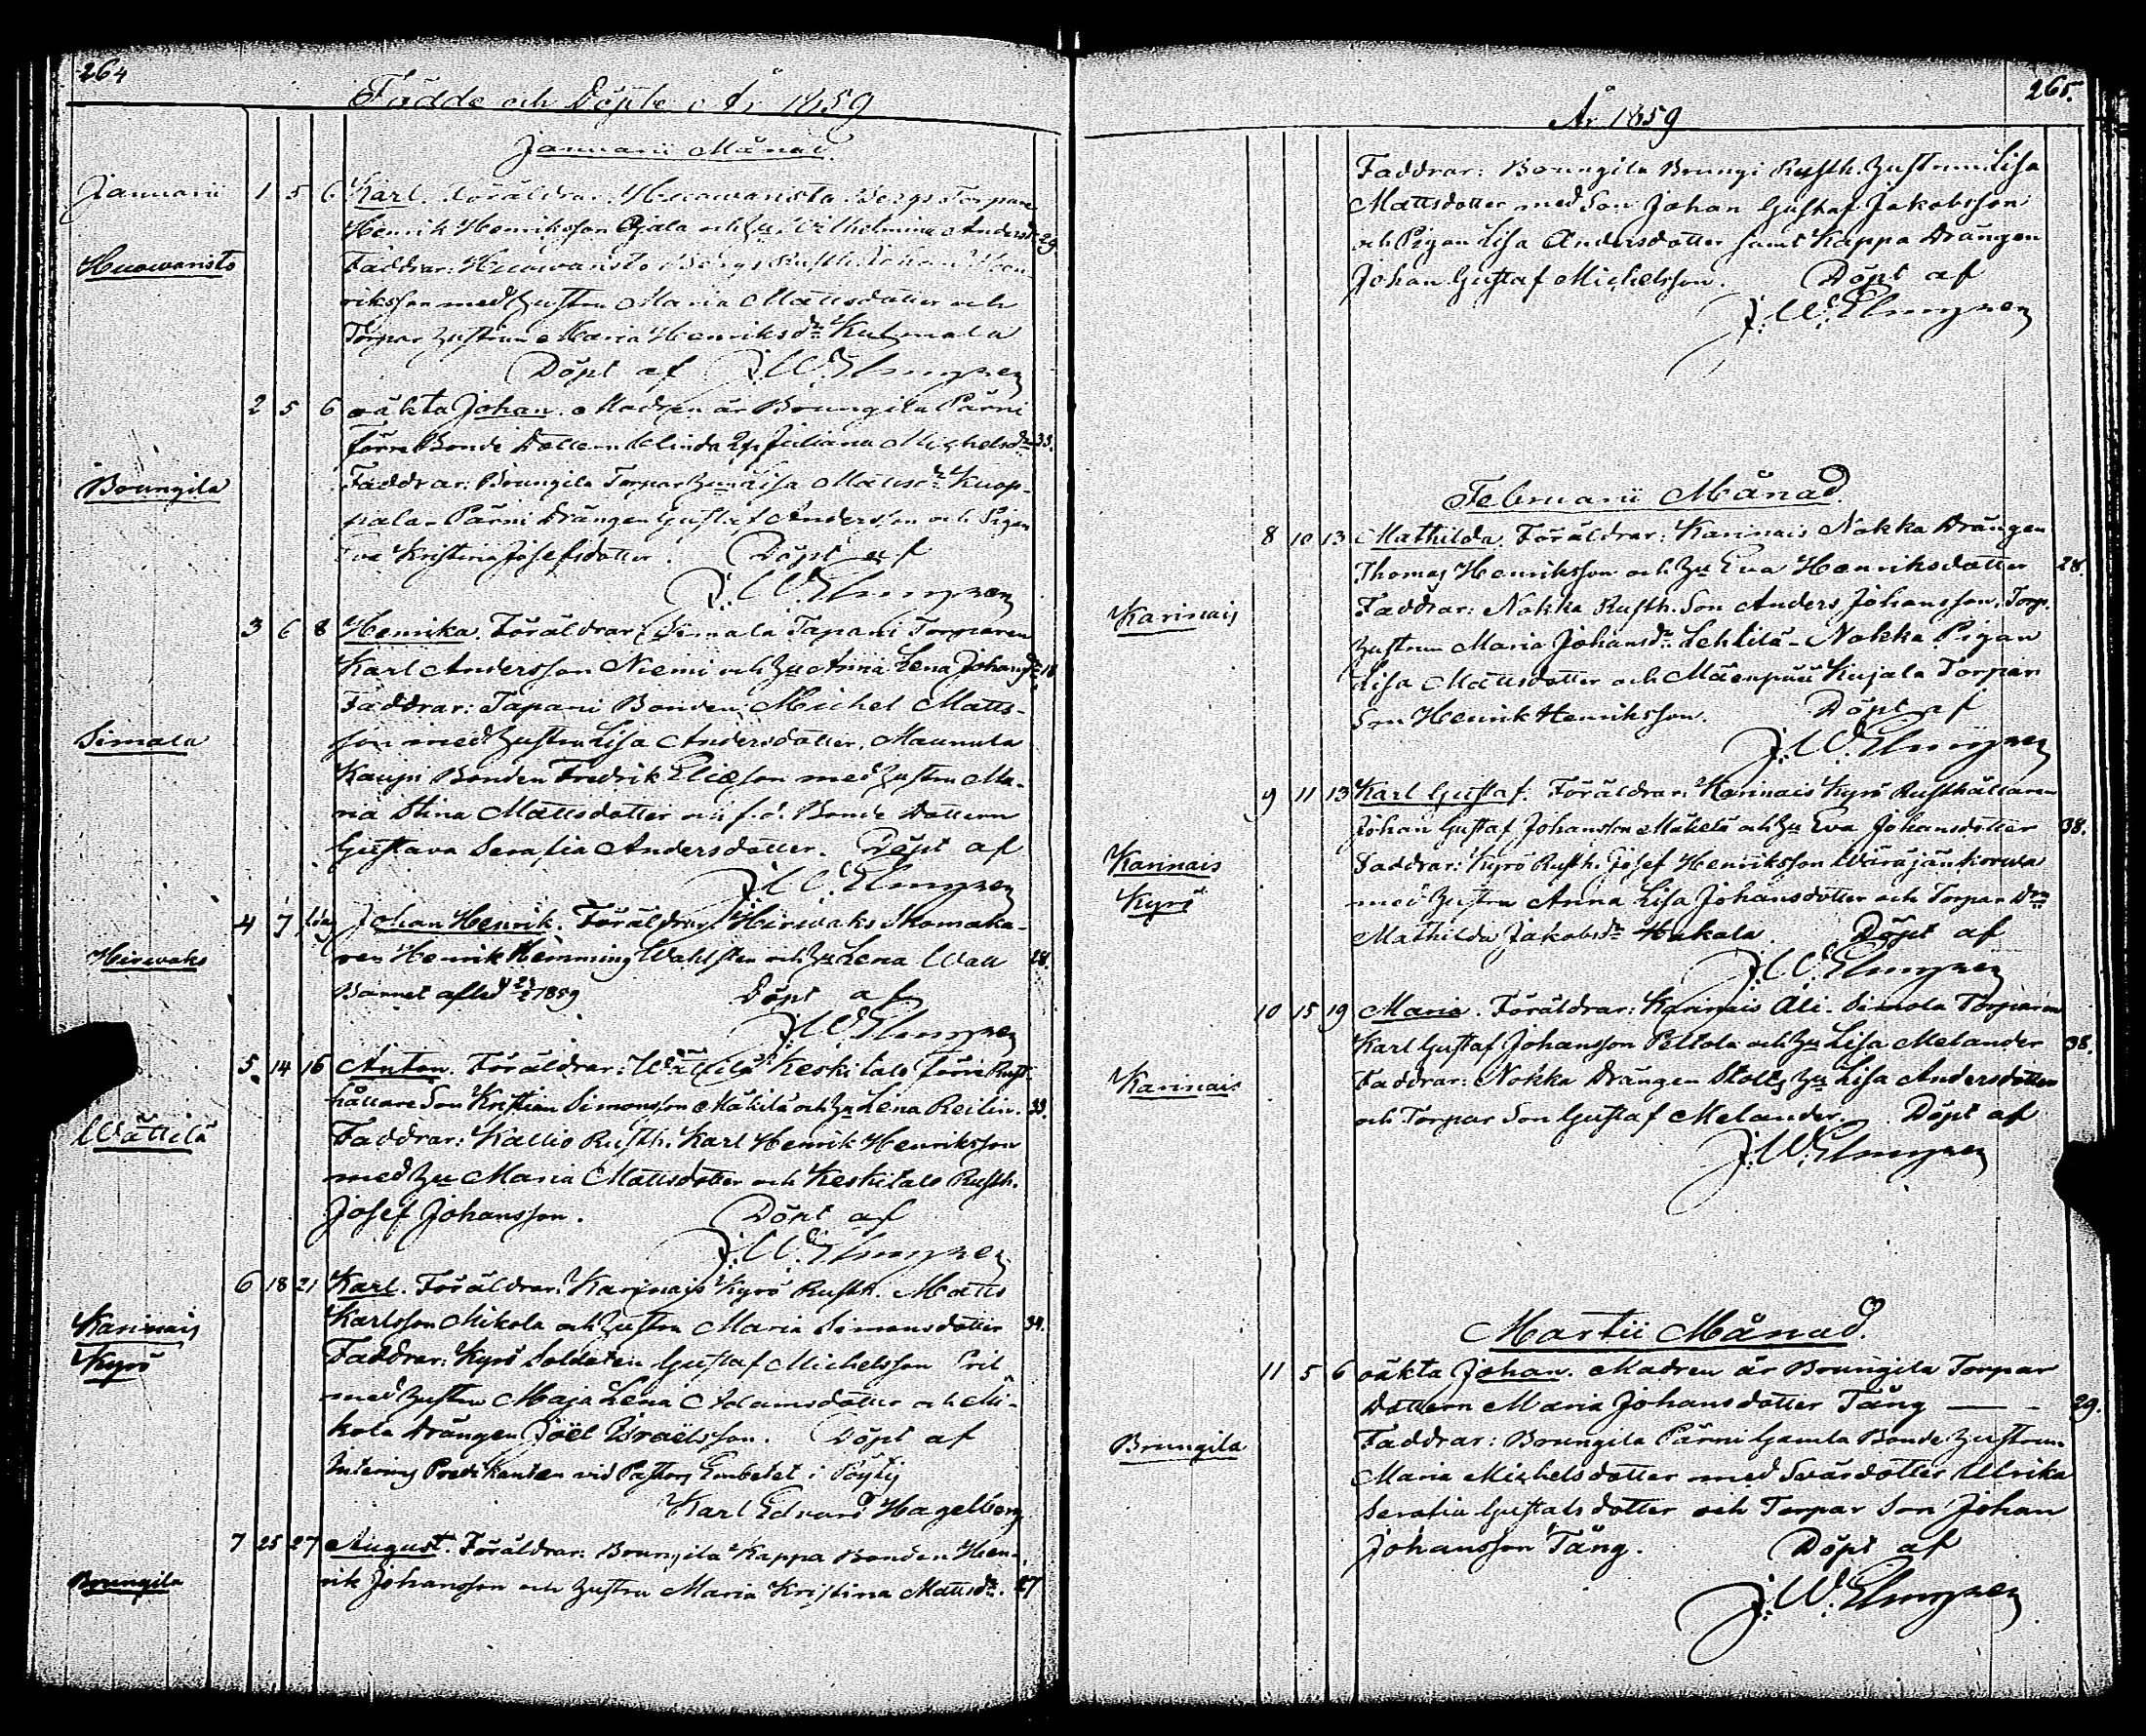 264
Födde och Döpte År 1859
Januarii Månad.
Januarii 1 5 6 Karl. Föräldrar: Huowansto Torpare
Henrik Henriksson Ojala och Hu Vilhelmina Andersdr 29.
Huowansto Faddrar: Huowansto Rusth. Johan Hen-
riksson med Hustru Maria Mattsdotter och
Torpar Hustrun Maria Henriksdr Kulmala
Döpt af J. W. Elmgren
2 5 6 oäkta Johan. Modren är Brungila Pärni
förre Bonde Dottern Juliana Michelsdr 33.
Brungila Faddrar: Brungila Torpar Hun Lisa Mattsdr Kuop-
pala - Pärni Drängen Gustaf Andersson och Pigan
Eva Kristina Josefsdotter. Döpt af
J. W. Elmgren
3 6 8 Henrika. Föräldrar: Simala Tapani Torparen
Karl Andersson Niemi och Hu Anna Lena Johansdr 18
Faddrar: Tapani Bonden Michel Matts-
Simala son med Hustru Lisa Andersdotter, Maunula
Kaupi Bonden Fredrik Eliæson med Hustru Ma-
ria Stina Mattsdotter och f.d. Bonde Dottern
Gustava Serafia Andersdotter. Döpt af
J. W. Elmgren
4 7 Johan Henrik. Föräldrar: Hirvaks Skomaka-
Hirvaks ren Henrik Hemming Wahlsten och Hu Lena Wall 28.
Barnet afled 1859 Döpt af
J. W. Elmgren
5. 14 16 Anton. Föräldrar: Wättilä Keskitalo förre Rust-
hållare Son Kristian Simonsson Mäkilä och Hu Lena Reilin. 33.
Wättilä Faddrar: Kallio Rusth. Karl Henrik Henriksson
med Hu Maria Mattsdotter och Keskitalo Rusth.
Josef Johansson. Döpt af
J. W. Elmgren
6 18 21 Karl. Föräldrar: Karinais Kyrö Rusth. Matts
Karinais Karlsson Mikola och Hustru Maria Simonsdotter 34.
Kyrö Faddrar: Kyrö Soldaten Gustaf Michelsson Pril
med Hustru Maja Lena Adamsdotter och Mi-
kola Drängen Joël Israelsson. Döpt af
Interims Predikanten vid Pastors Embetet i Pöytis
Karl Edvard Hagelberg
7 25 27 August. Föräldrar: Brungila Kappa Bonden Hen-
Brungila rik Johansson och Hustru Maria Kristina Mattsdr. 27
265.
År 1859
Faddrar: Brungila Brungi Rusth. Hustrun Lisa
Mattsdotter med Son Johan Gustaf Jakobsson
och Pigan Lisa Andersdotter samt Kappa Drängen
Johan Gustaf Michelsson. Döpt af
J. W. Elmgren
Februarii Månad.
8 10 13 Mathilda. Föräldrar: Karinais Nokka Drängen
Thomas Henriksson och Hu Eva Henriksdotter 28.
Karinais Faddrar: Nokka Rusth. Son Anders Johansson, Torp.
Hustrun Maria Johansdr Lehtilä - Nokka Pigan
Lisa Mattsdotter och Mäenpää Kujala Torpar
Son Henrik Henriksson. Döpt af
J. W. Elmgren
9 11 13 Karl Gustaf. Föräldrar: Karinais Kyrö Rusthållaren
Johan Gustaf Johansson Mäkelä och Hu Eva Johansdotter 38.
Karinais Faddrar: Kyrö Rusth. Josef Henriksson Wäräjänkorwa
Kyrö med Hustru Anna Lisa Johansdotter och Torpar Drn
Mathilda Jakobsdr Hakala. Döpt af
J. W. Elmgren
10 15 19 Maria. Föräldrar: Karinais Ali-Simola Torparen
Karl Gustaf Johansson Peltola och Hu Lisa Melander 38.
Karinais Faddrar: Nokka Drängen Stolts Hu Lisa Andersdotter
och Torpar Son Gustaf Melander. Döpt af
J. W. Elmgren
Martii Månad.
11 5 6 oäkta Johan. Modren är Brungila Torpar
Dottern Maria Johansdotter Täng — - 29.
Brungila Faddrar: Brungila Pärni Gamla Bonde Hustrun
Maria Michelsdotter med Svärdotter Ulrika
Serafia Gustafsdotter och Torpar Son Johan
Johansson Täng. Döpt af
J. W. Elmgren